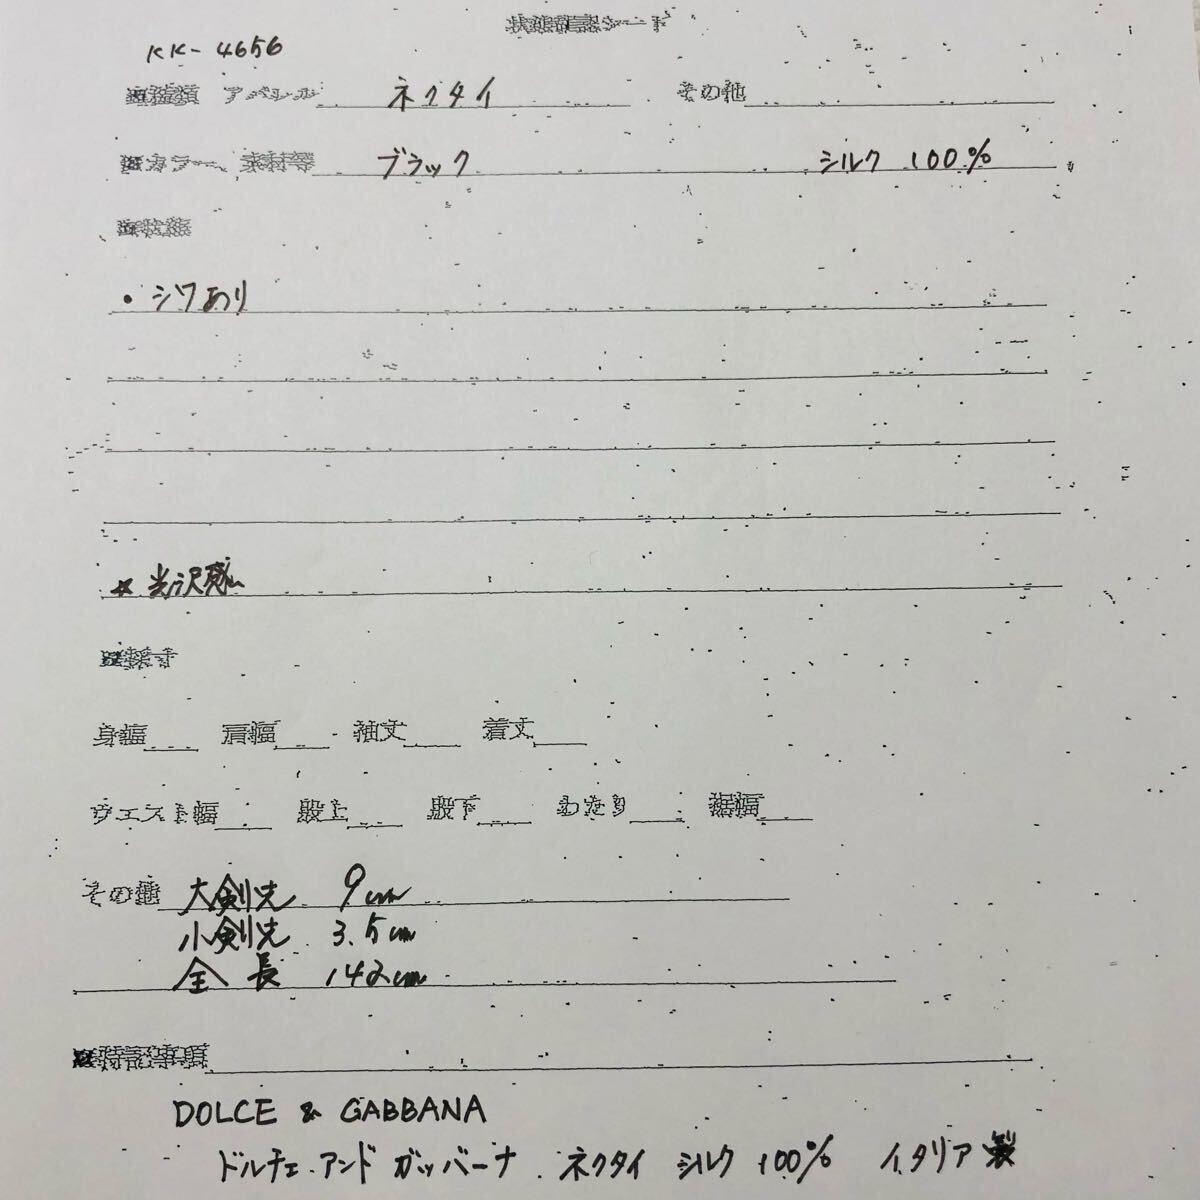 状態確認シート
KK-4656
■種類 アパレル ネクタイ その他
■カラー、素材等 ブラック シルク 100%
■状態
・シワあり
☆光沢感
■採寸
身幅 肩幅 袖丈 着丈
ウエスト幅 股上 股下 わたり 裾幅
その他 大剣先 9cm
小剣先 3.5cm
全長 142cm
■特記事項
DOLCE & GABBANA
ドルチェ.アンド ガッバーナ.ネクタイ シルク 100% イタリア製